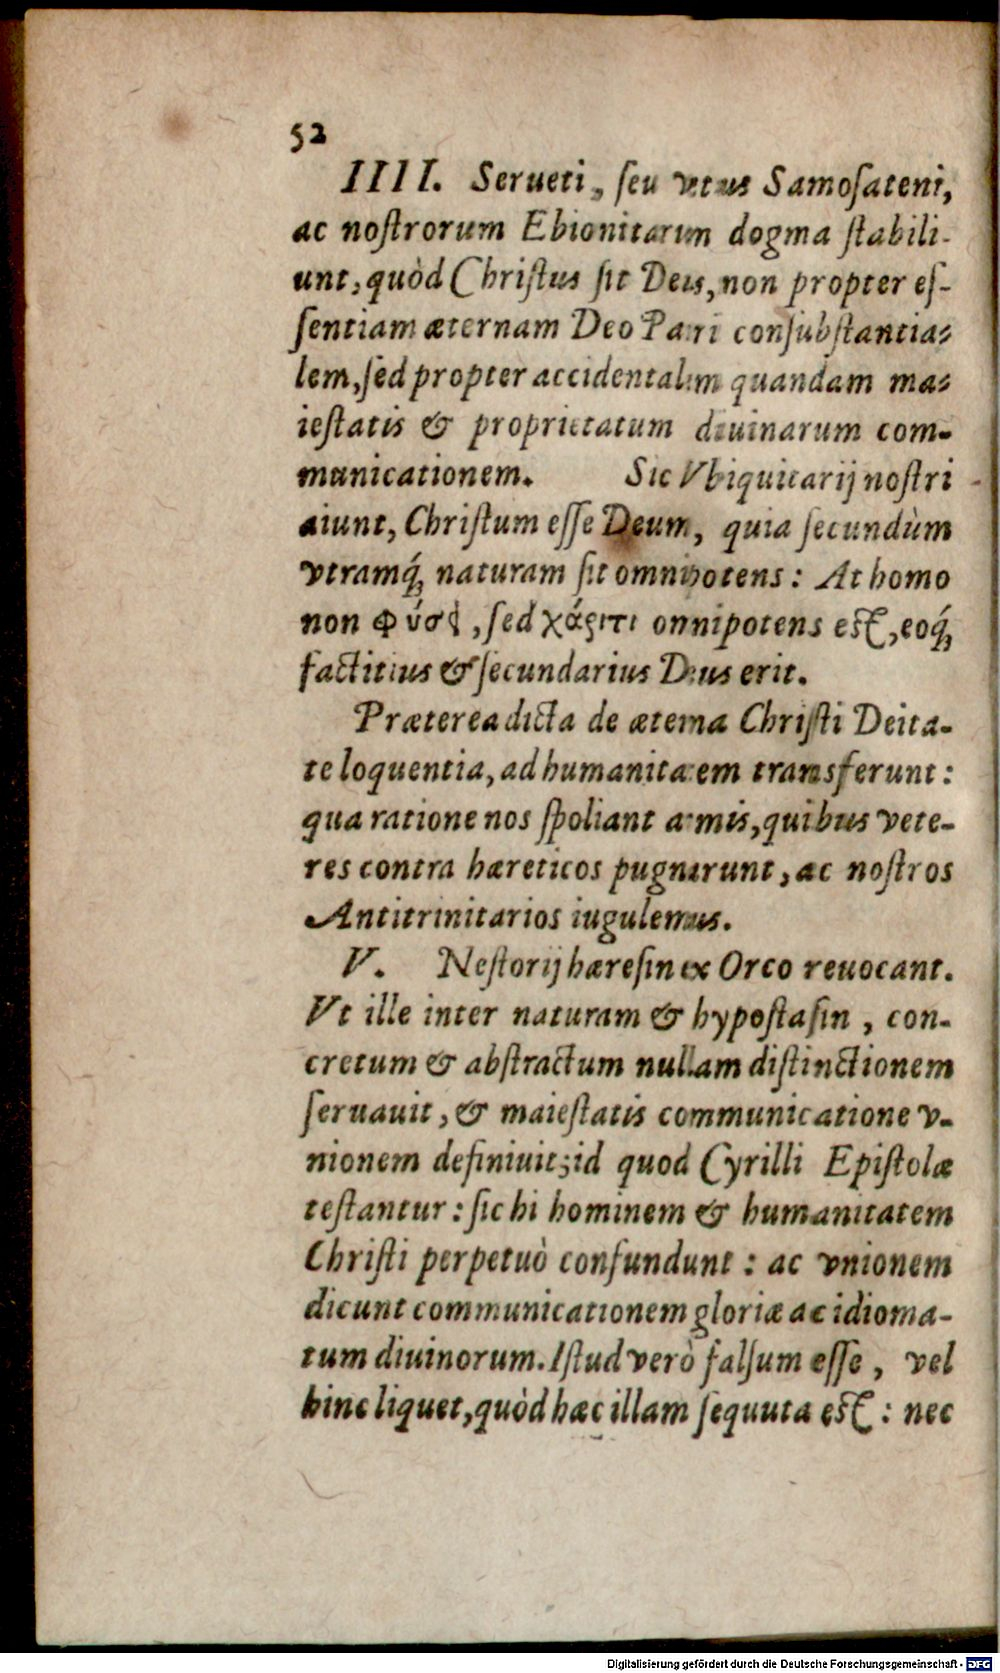 52
IIII. Serueti, ſeu vetus Samoſateni,
ac noſtrorum Ebionitarum dogma ſtabili-
unt, quòd Chriſtus ſit Deus, non propter eſ-
ſentiam æternam Deo Patri conſubſtantia-
lem, ſed propter accidentalem quandam ma-
ieſtatis & proprietatum diuinarum com-
municationem. Sic Vbiquitarij noſtri
aiunt, Chriſtum eſſe Deum, quia ſecundùm
vtramq́; naturam ſit omnipotens: At homo
non φύσει, ſed χάριτι omnipotens eſt, eoq́;
factitius & ſecundarius Deus erit.
Præterea dicta de æterna Chriſti Deita-
te loquentia, ad humanitatem transferunt:
qua ratione nos ſpoliant armis, quibus vete-
res contra hæreticos pugnarunt, ac noſtros
Antitrinitarios iugulemus.
V. Neſtorij hæreſin ex Orco reuocant.
Vt ille inter naturam & hypoſtaſin, con-
cretum & abſtractum nullam diſtinctionem
ſeruauit, & maieſtatis communicatione v-
nionem definiuit; id quod Cyrilli Epiſtolæ
teſtantur: ſic hi hominem & humanitatem
Chriſti perpetuò confundunt: ac vnionem
dicunt communicationem gloriæ ac idioma-
tum diuinorum. Iſtud verò falſum eſſe, vel
hinc liquet, quòd hæc illam ſequuta eſt: nec
Digitalisierung gefördert durch die Deutsche Forschungsgemeinschaft - DFG